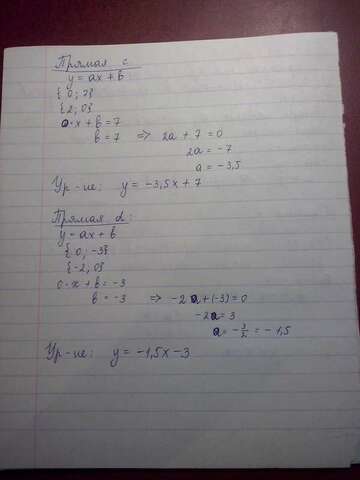 Прямая c
y = ax + b:
{0; 7}
{2; 0}
0·x + b = 7
b = 7 => 2a + 7 = 0
2a = -7
a = -3,5
Ур-ие: y = -3,5x + 7
Прямая d:
y = ax + b
{0; -3}
{-2; 0}
0·x + b = -3
b = -3 => -2a + (-3) = 0
-2a = 3
a = -3/2 = -1,5
Ур-ие: y = -1,5x - 3